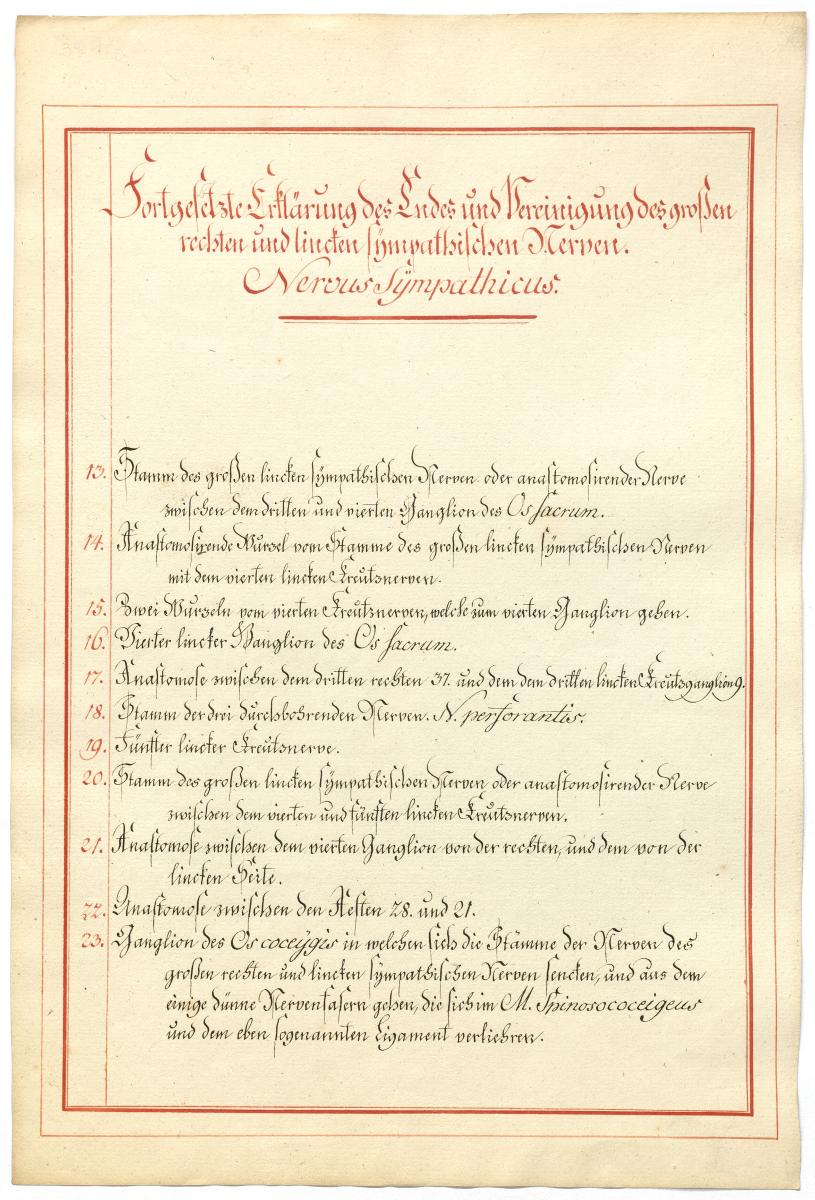 Fortgesetzte Erklärung des Endes und Vereinigung des großen
rechten und lincken sÿmpathischen Nerven.
Nervus Sÿmpathicus.
13. Stamm des großen lincken sÿmpathischen Nerven oder anastomosirender Nerve
zwischen dem dritten und vierten Ganglion des Os sacrum.
14. Anastomosirende Wurzel vom Stamme des großen lincken sÿmpathischen Nerven
mit dem vierten lincken Kreutznerven.
15. Zwei Wurzeln vom vierten Kreutznerven, welche zum vierten Ganglion gehen.
16. Vierter lincker Ganglion des Os sacrum.
17. Anastomose zwischen dem dritten rechten 37. und dem dem dritten lincken Kreutzganglion 9.
18. Stamm der drei durchbohrenden Nerven. N. perforantis.
19. Fünfter lincker Kreutznerve.
20. Stamm des großen lincken sÿmpathischen Nerven, oder anastomosirender Nerve
zwischen dem vierten und fünften lincken Kreutznerven.
21. Anastomose zwischen dem vierten Ganglion von der rechten, und dem von der
lincken Seite.
22. Anastomose zwischen den Aesten 28. und 21.
23. Ganglion des Os coceÿgis in welchen sich die Stämme der Nerven des
großen rechten und lincken sÿmpathischen Nerven sencken, und aus dem
einige dünne Nervenfasern gehen, die sich im M. Spinosococeigeus
und dem eben sogenannten Ligament verliehren.